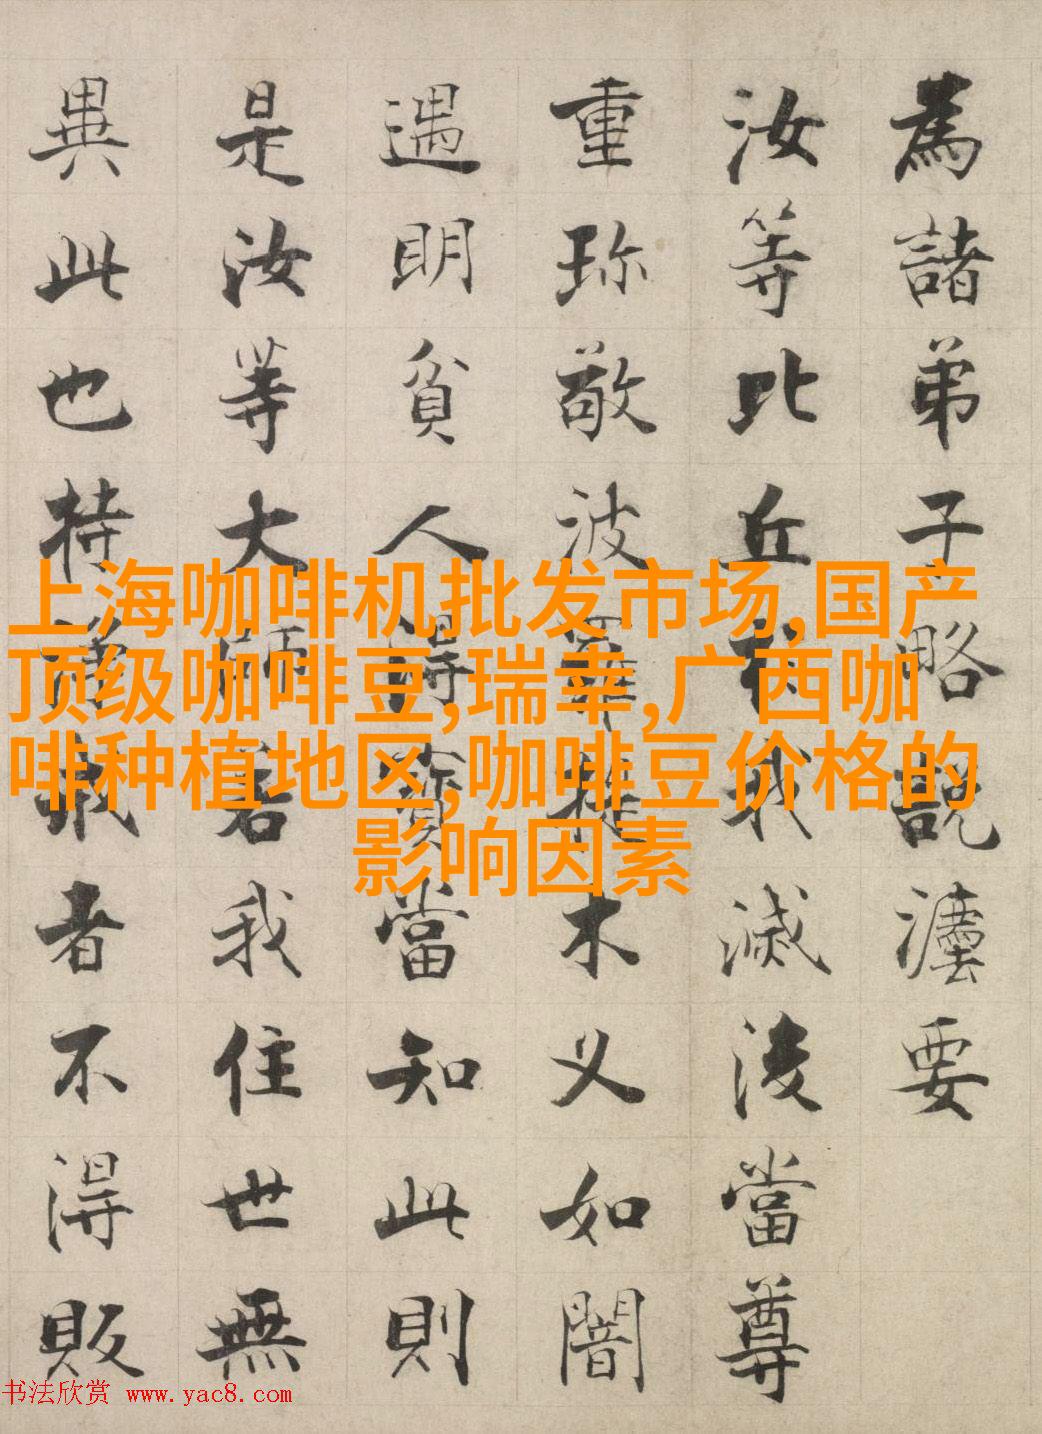 為諸弟子略說灋要
汝等比丘於我滅後當尊
重珎敬波羅提木叉如闇
遇明貧人得寶當知此則
是汝等大師若我住世無
異此也持淨戒者不得販
上海咖啡机批发市场,国产
顶级咖啡豆,瑞幸,广西咖
啡种植地区,咖啡豆价格的
影响因素
书法欣赏 www.yac8.com